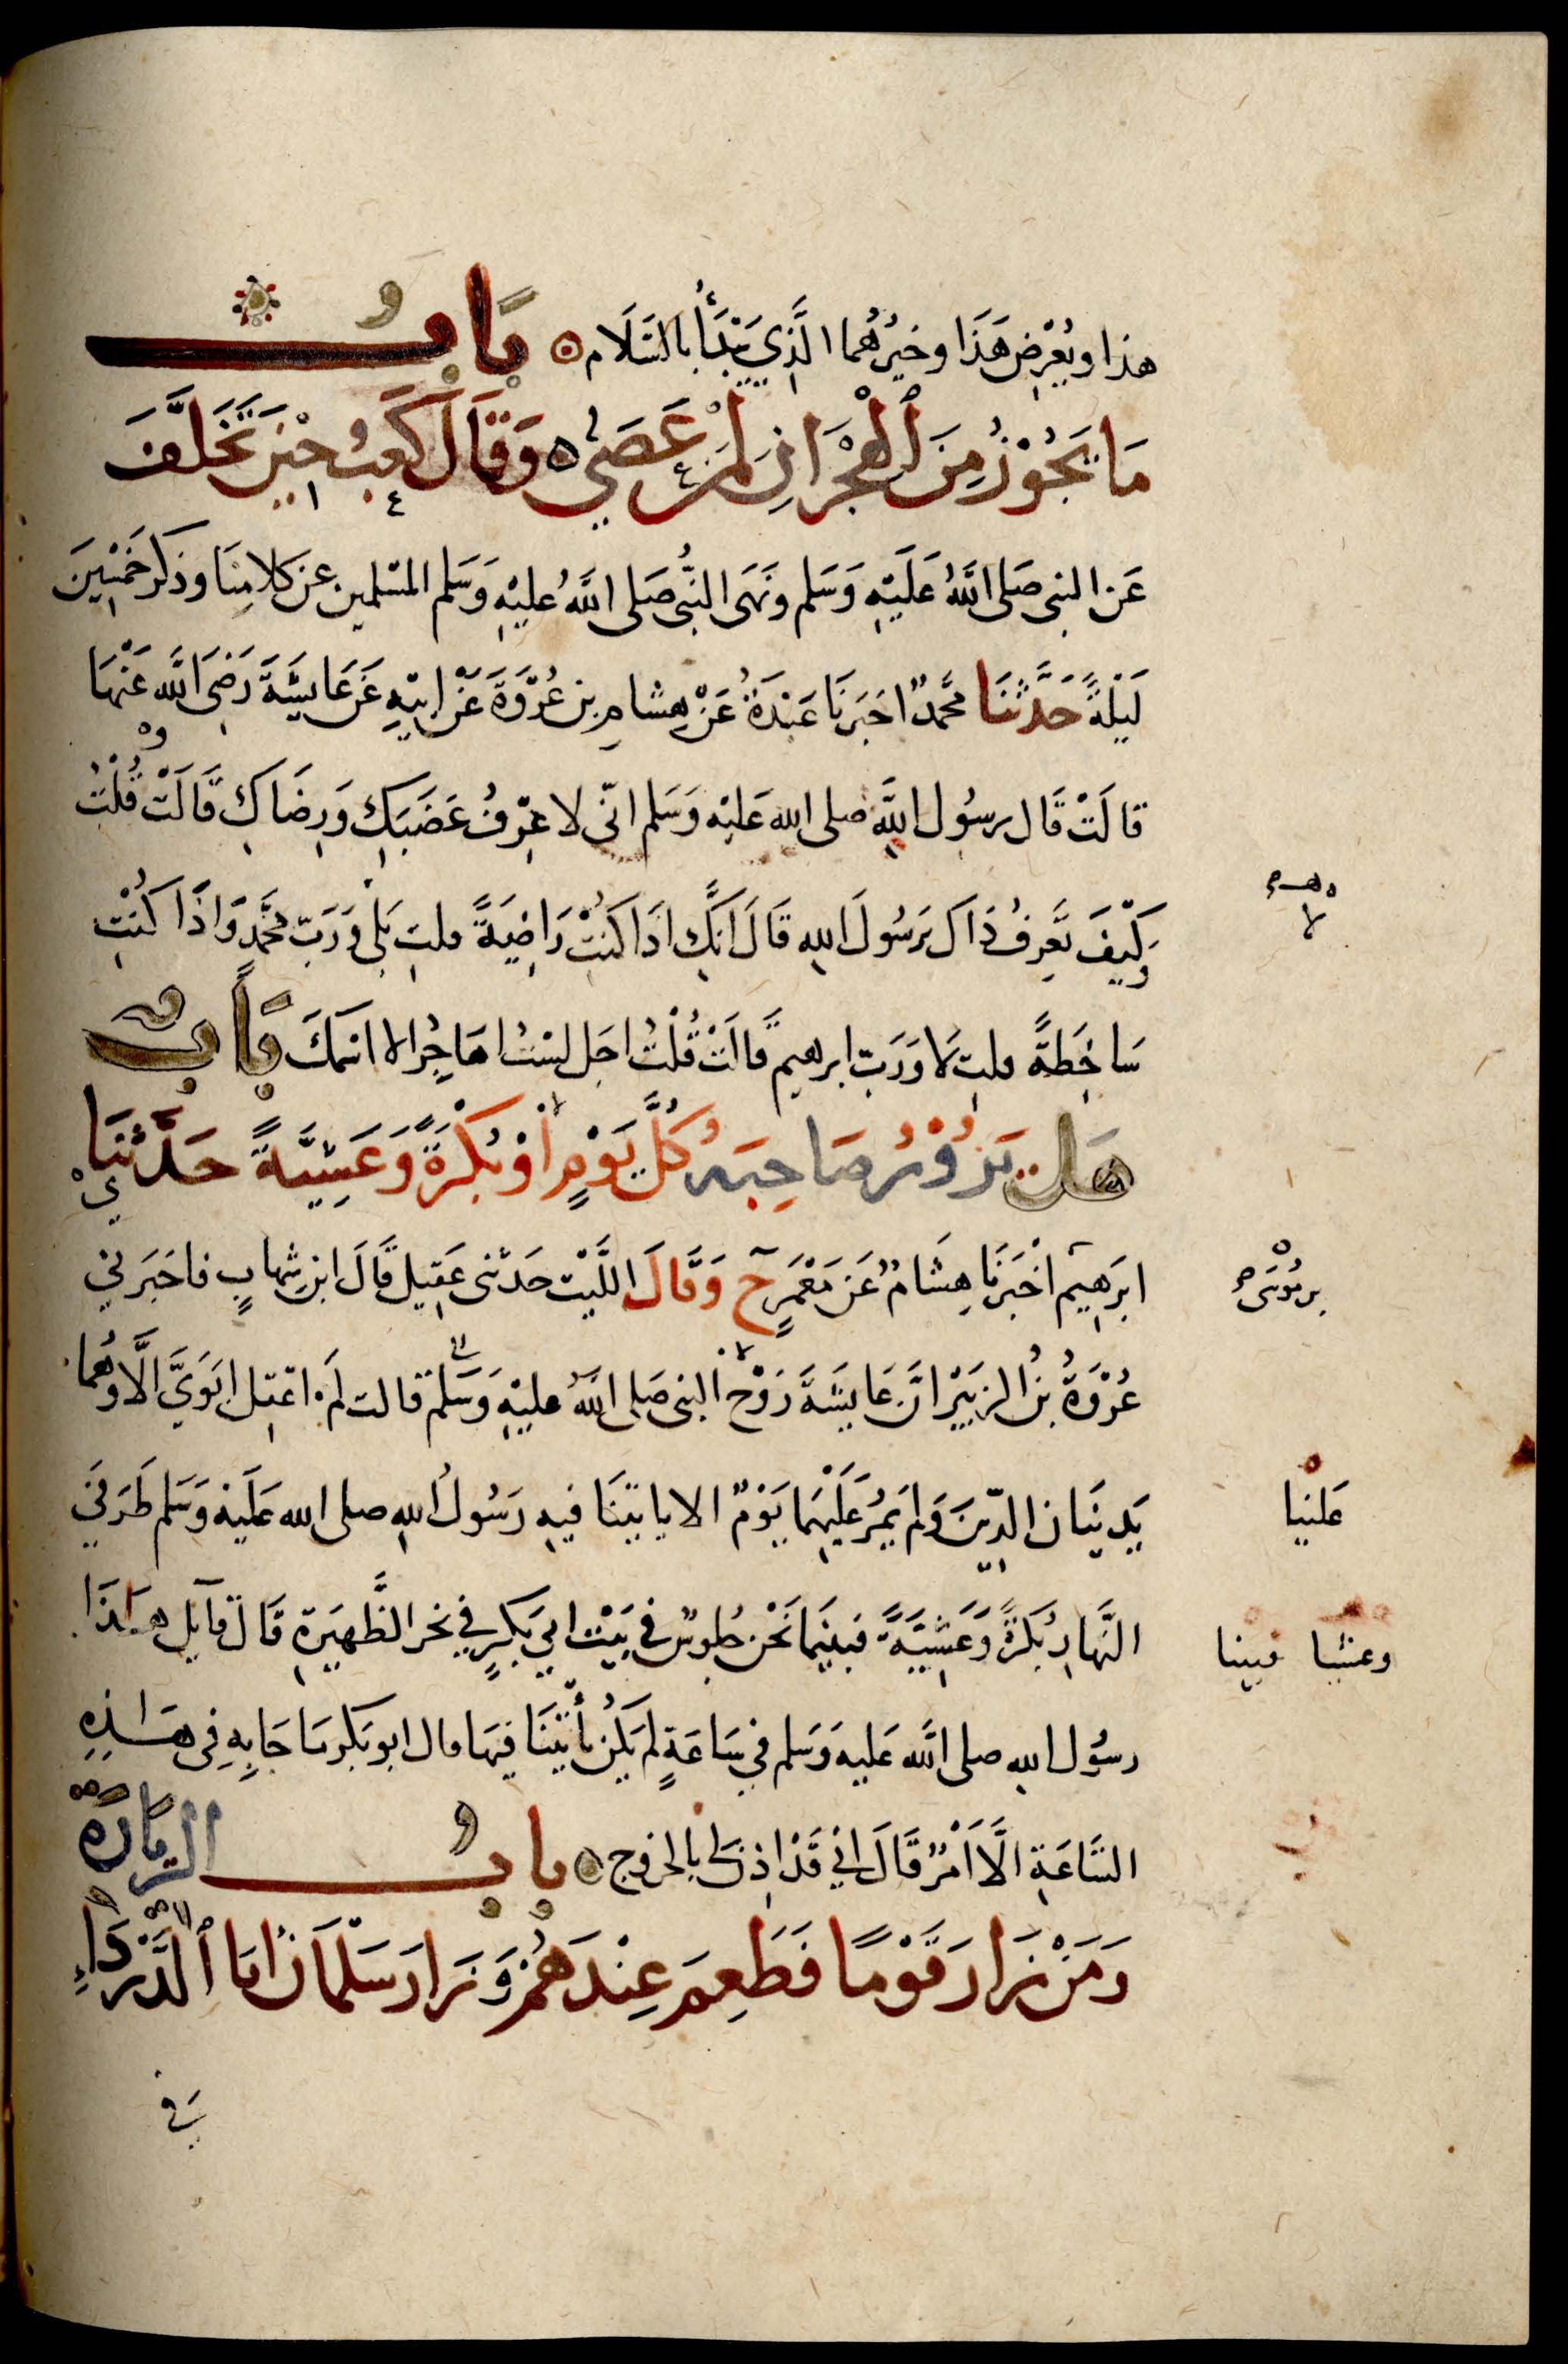 هذا ويُعْرِض هَذَا وخيرُهُما الَّذِي يَبْدَأُ بالسَّلَام بَابُ
مَا يَجُوزُ مِنَ ٱلْهِجْرَانِ لِمَنْ عَصَى وَقَالَ كَعْبٌ حِيْنَ تَخَلَّفَ
عَن النبي صَلى اللَّهُ عَلَيْهِ وَسَلم ونَهَى النَّبيُّ صَلى اللَّهُ عليْهِ وَسَلم المسْلمين عن كَلامِنَا وذكَر خَمْسِينَ
لَيْلَةً حَدَّثَنَا محَّمدٌ اخبَرنَا عَبْدَةُ عَنْ هِشامِ بن عُرْوَةَ عَنْ ابيْهِ عَن عَايشَةَ رَضِيَ اللَّه عَنْهَا
قالَتْ قَال رسُول اللَّهِ صلى الله عَليْه وَسَلم انّى لاعْرِفُ غَضَبَكِ وَرِضَاكِ قَالَتْ قُلْتُ
وَكَيْفَ تَعْرِفُ ذَاكَ يَرَسُولَ اللهِ قَالَ انَّكِ اذَا كُنْتِ رَاضِيَةً قلتِ بَلَى وَرَبّ محَّمدٍ وَاذَا كُنْتِ
سَاخِطَةً قلتِ لَا وَرَبّ ابرهيم قَالَتْ قُلْتُ اجَل لسْتُ اهَاجِرُ الا اسمَكَ بَابُ
هَل يَزُوْرُ صَاحِبَهُ كُلَّ يَوْمٍ أوْ بُكْرَةً وَعَشِيَّةً حَدَّثنَا
ابرَهِيم اخْبَرَنَا هِشَامٌ عَن مَعْمَرٍ ح وَقَالَ اللَّيْث حَدثنى عقِيل قَالَ ابن شِهابٍ فاخبَرَني
عُرْوَةُ بنُ الزبَيْرِ انَّ عَايشَةَ زَوْجَ النبي صَلى اللَّهُ عليْهِ وَسَلَّم قالت لَمْ اعْقِل ابَوَيَّ الَّا وهُما
يَدِينَان الدِّينَ وَلم يَمُرَّ عَلَيْهِمَا يَوْمٌ الا ياتينَا فيهِ رَسُولُ اللهِ صلى الله عَلَيْهِ وَسَلم طَرَفَيِ
النَّهارِ بُكرَةً وَعَشِيَّةً فبيْنمَا نَحْن جُلوسٌ في بَيْت ابي بَكرٍ في نحر الظَّهِيرَةِ قَالَ قآيل هَذَا
رسُول اللهِ صلى اللَّه عَليه وَسَلم في سَاعَةٍ لَمْ يَكُن يأتِينَا فِيهَا قال ابو بَكر مَا جَا بِهِ فِي هَذِهِ
السَّاعَةِ الَّا أَمْرٌ قَالَ انّي قَدْ اذِنَ لي بالخروج بابُ الزيَارَةِ
وَمَنْ زَارَ قَوْمًا فَطَعِمَ عِنْدَهُمْ وَزَارَ سَلْمَانُ ابَا ٱلدَّرْدَاءِ
في
لا
بن مُوسَى
عَلينا
وعشيا فبينا